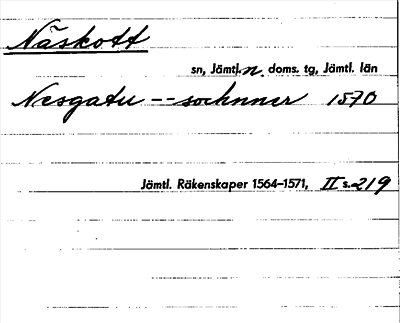 Näskott
sn, Jämtl. n. doms. tg, Jämtl. län
Nesgatu -- sochnner 1570
Jämtl. Räkenskaper 1564–1571, II s. 219